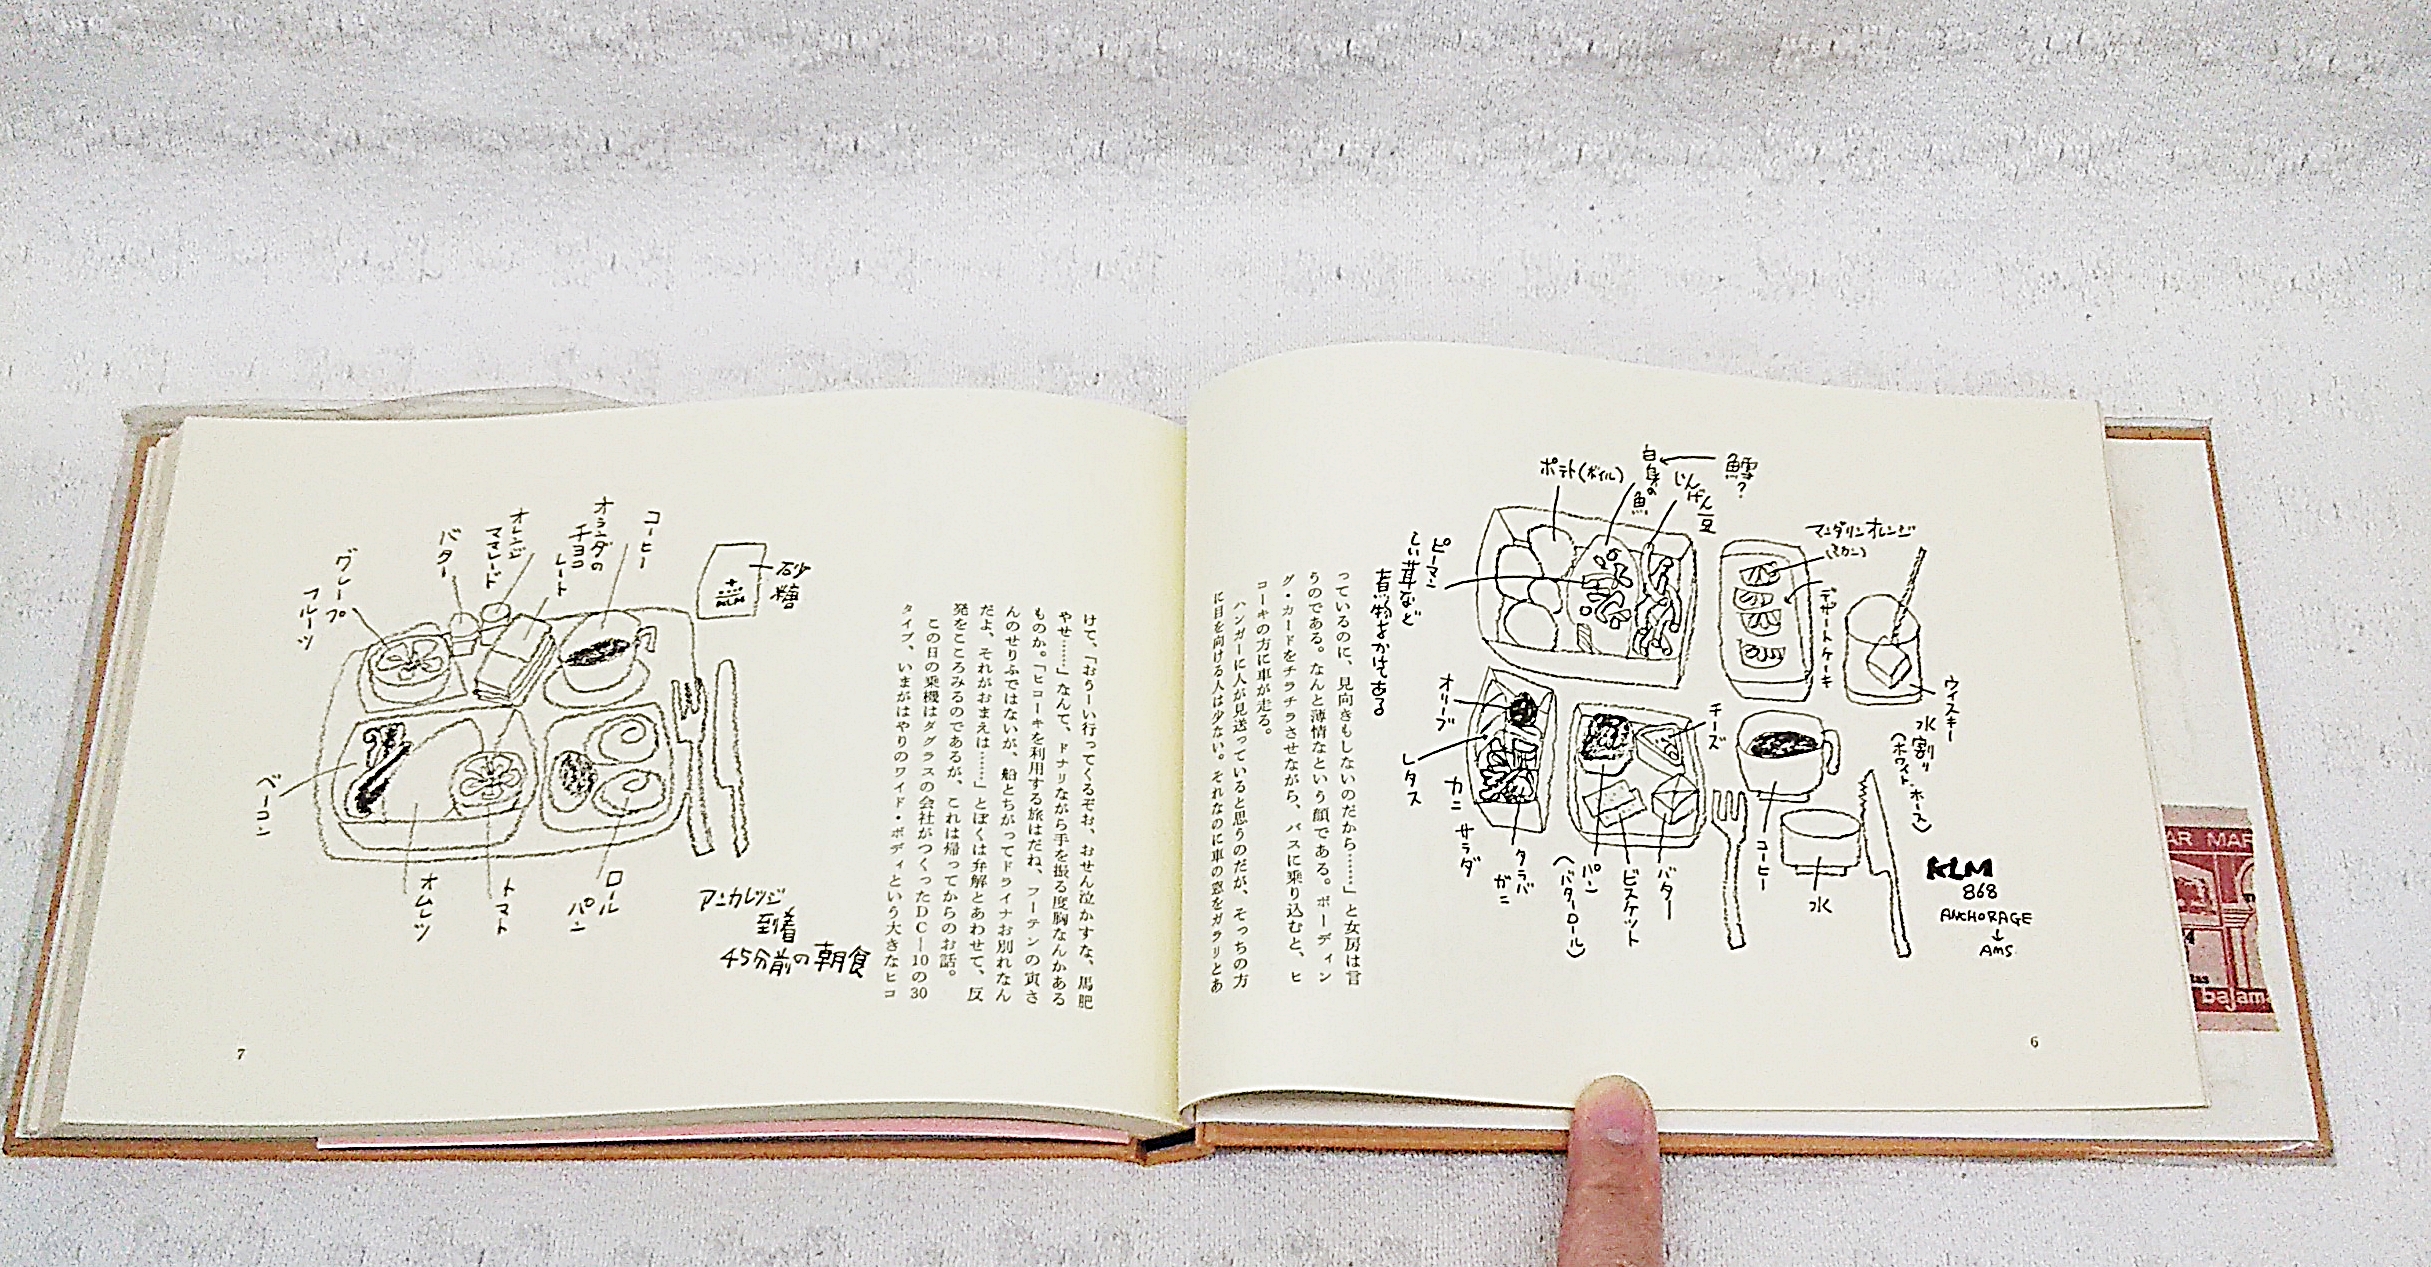 ポテト(ボイル)
白身の魚
鱈?
いんげん豆
マンダリンオレンジ
(ミカン)
デザートケーキ
ピーマン
しい茸など
煮物をかけてある
ウィスキー
水割り
(ホワイト・ホース)
オリーブ
レタス
カニサラダ
タラバガニ
チーズ
パン
(バターロール)
ビスケット
バター
コーヒー
水
KLM
868
ANCHORAGE
↓
AMS.
っているのに、見向きもしないのだから……」と女房は言
うのである。なんと薄情なという顔である。ボーディン
グ・カードをチラチラさせながら、バスに乗り込むと、ヒ
コーキの方に車が走る。
ハンガーに人が見送っていると思うのだが、そっちの方
に目を向ける人は少ない。それなのに車の窓をガラリとあ
6
けて、「おうーい行ってくるぞお、おせん泣かすな、馬肥
やせ……」なんて、ドナリながら手を振る度胸なんかある
ものか。「ヒコーキを利用する旅はだね、フーテンの寅さ
んのせりふではないが、船とちがってドライナお別れなん
だよ、それがおまえは……」とぼくは弁解とあわせて、反
発をこころみるのであるが、これは帰ってからのお話。
この日の乗機はダグラスの会社がつくったDC—10の30
タイプ、いまがはやりのワイド・ボディという大きなヒコ
砂糖
KLM
コーヒー
オランダの
チョコレート
オレンジ
ママレード
バター
グレープ
フルーツ
ベーコン
オムレツ
トマト
ロール
パン
アンカレッジ
到着
45分前の朝食
7
AR MAR
bajam